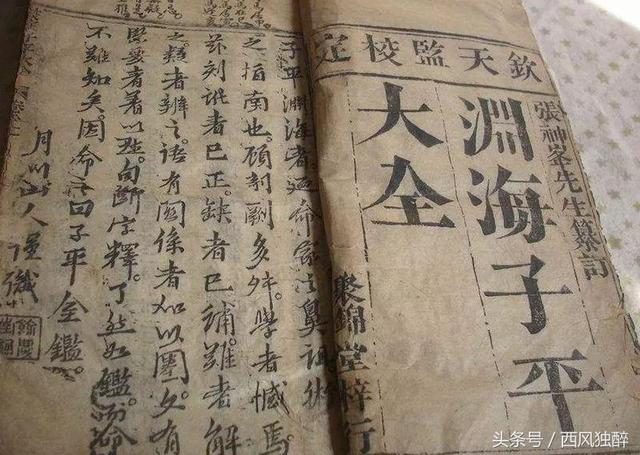 欽天監校定
張神峯先生纂訂
淵海子平
大全
聚錦堂梓行
子平淵海者迺命家之鼻祖術
之指南也。顧剞劂多舛。學者憾焉
茲刻訛者已正。缺者已補難者解
之。疑者辨之。語有關係者加以圈。文有
緊要者著以㸃。句斷字釋。了然如鑑而命
不難知矣。因命之曰子平全鑑。
山人謹識
头条号 / 西风独醉